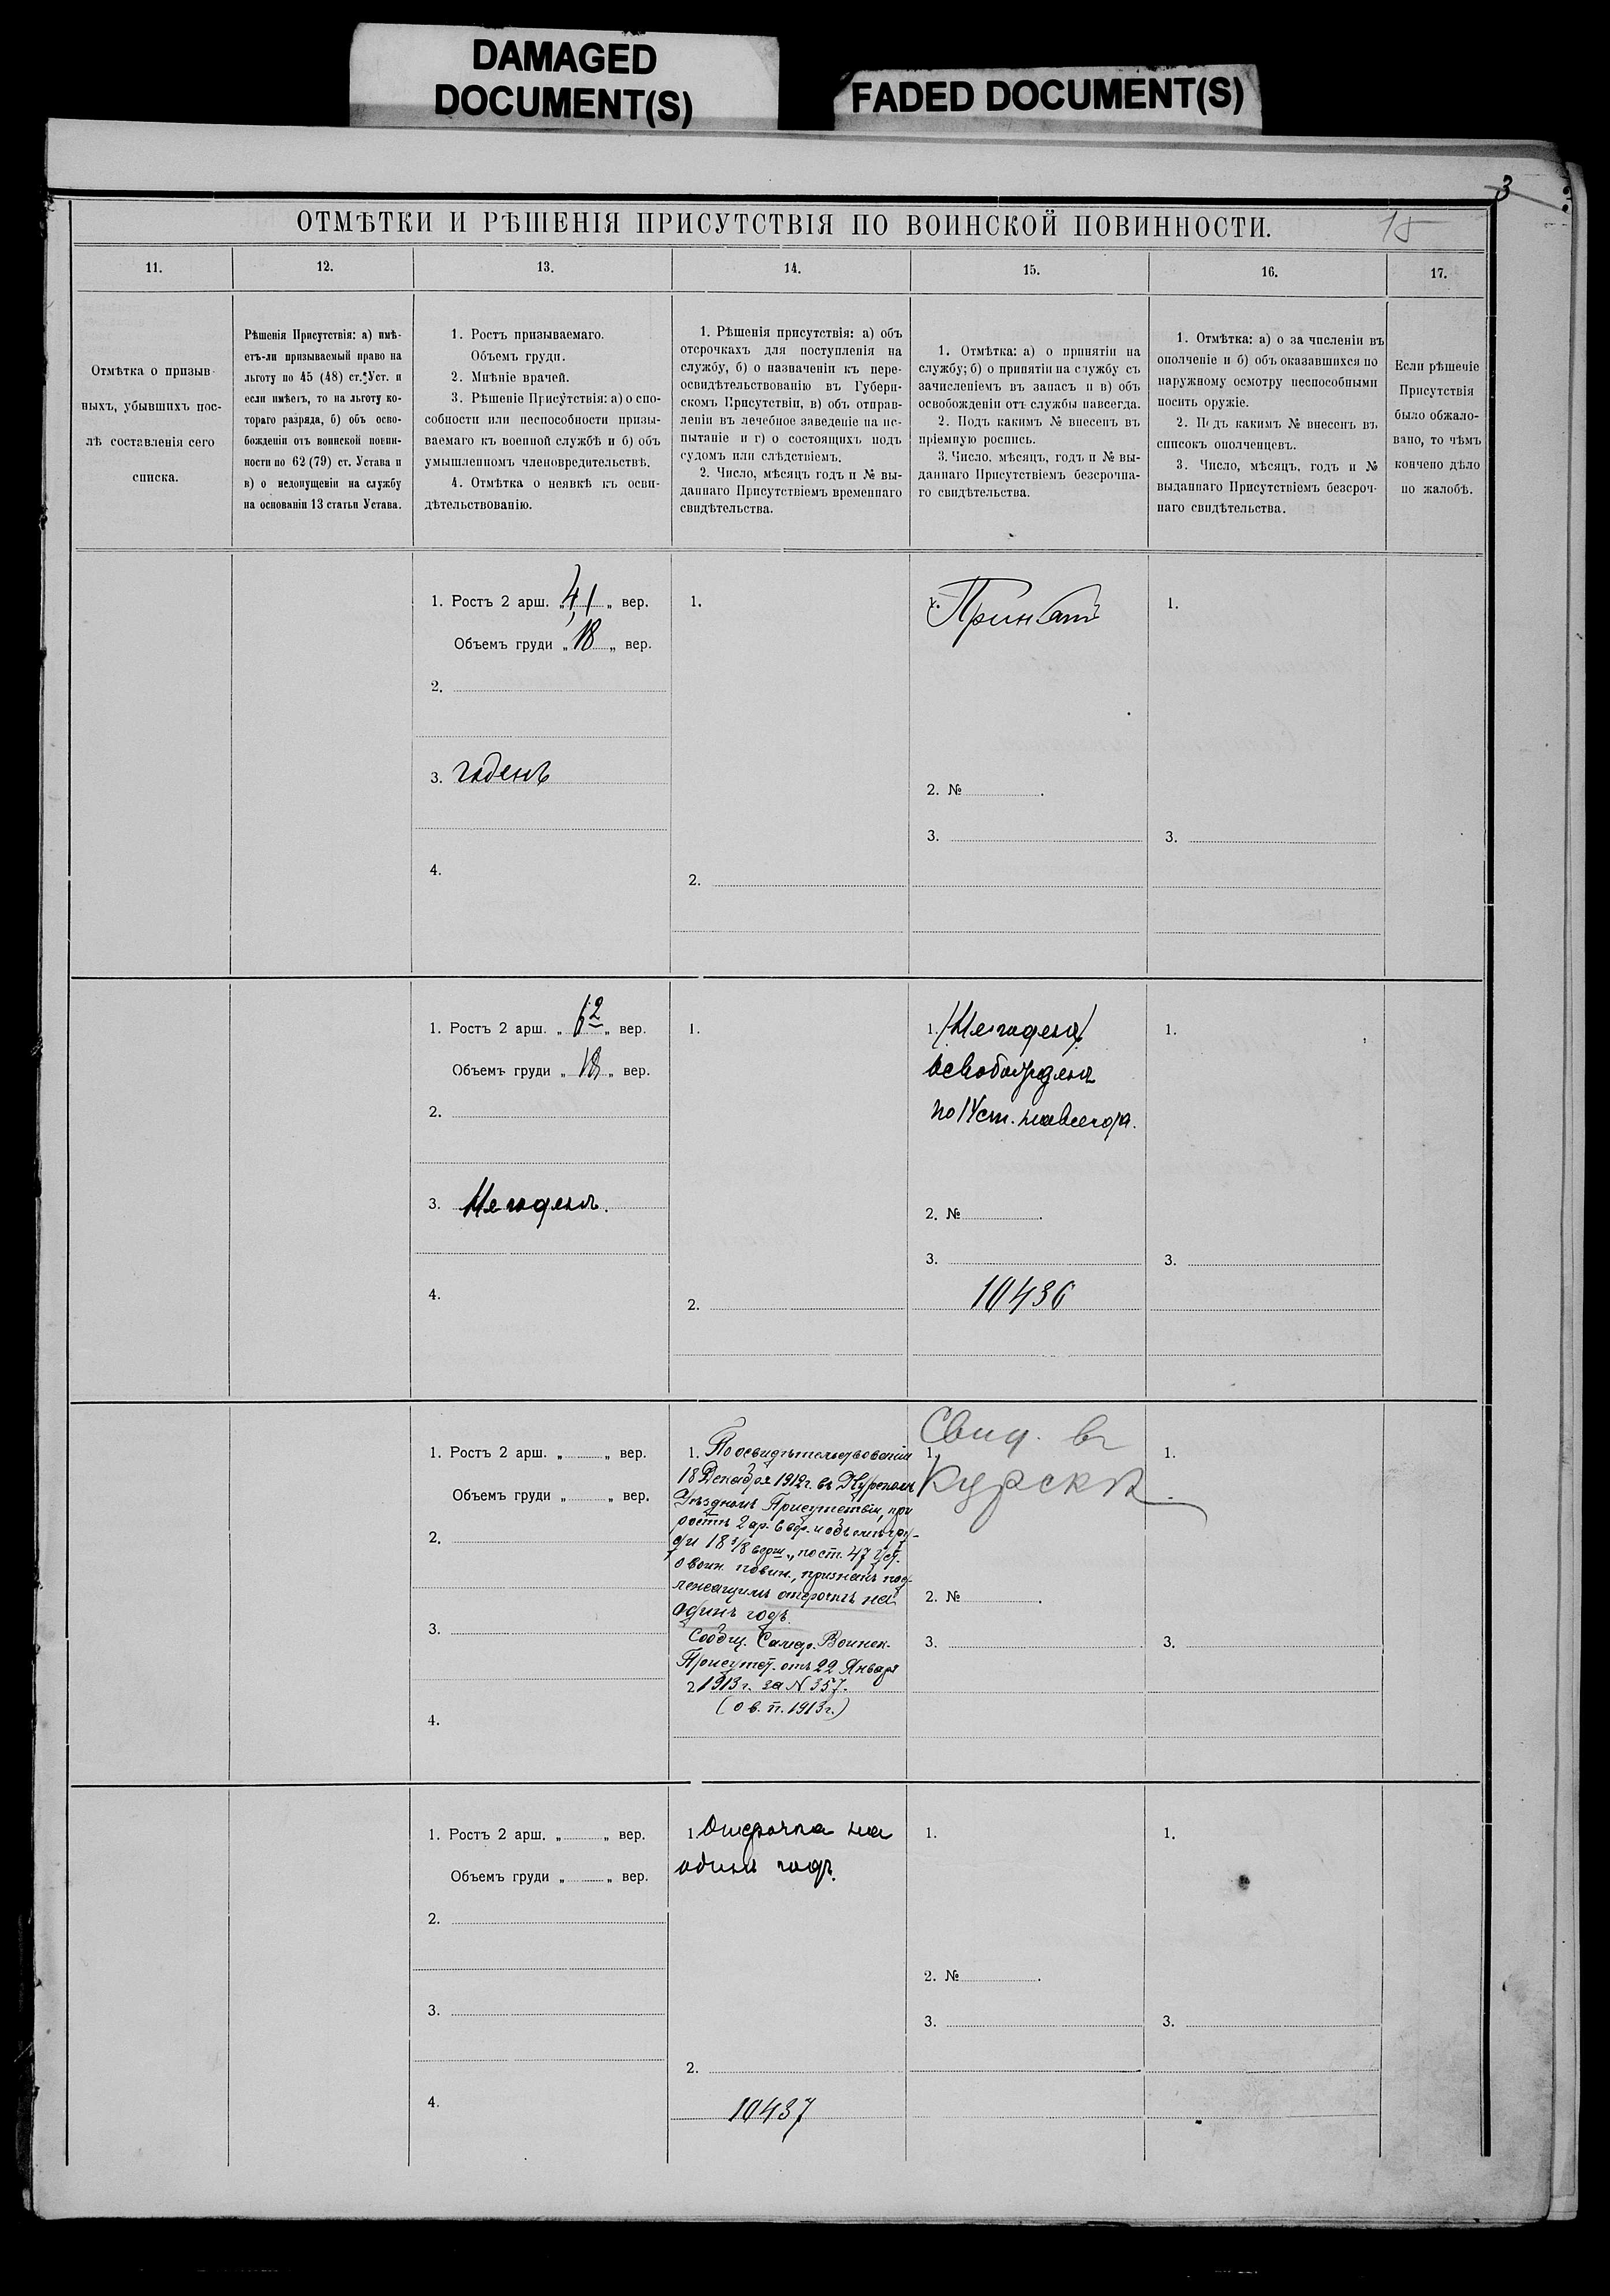 DAMAGED
DOCUMENT(S)
FADED DOCUMENT(S)
3
ОТМѢТКИ И РѢШЕНІЯ ПРИСУТСТВІЯ ПО ВОИНСКОЙ ПОВИННОСТИ.
15
11.
12.
13.
14.
15.
16.
17.
Отмѣтка о призыв-
ныхъ, убывшихъ пос-
лѣ составленія сего
списка.
Рѣшенія Присутствія: а) имѣ-
етъ-ли призываемый право на
льготу по 45 (48) ст. Уст. и
если имѣетъ, то на льготу ко-
тораго разряда, б) объ осво-
божденіи отъ воинской повин-
ности по 62 (79) ст. Устава и
в) о недопущеніи на службу
на основаніи 13 статьи Устава.
1. Ростъ призываемаго.
Объемъ груди.
2. Мнѣніе врачей.
3. Рѣшеніе Присутствія: а) о спо-
собности или неспособности призы-
ваемаго къ военной службѣ и б) объ
умышленномъ членовредительствѣ.
4. Отмѣтка о неявкѣ къ осви-
дѣтельствованію.
1. Рѣшенія присутствія: а) объ
отсрочкахъ для поступленія на
службу, б) о назначеніи къ пере-
освидѣтельствованію въ Губерн-
скомъ Присутствіи, в) объ отправ-
леніи въ лечебное заведеніе на ис-
пытаніе и г) о состоящихъ подъ
судомъ или слѣдствіемъ.
2. Число, мѣсяцъ годъ и № вы-
даннаго Присутствіемъ временнаго
свидѣтельства.
1. Отмѣтка: а) о принятіи на
службу; б) о принятіи на службу съ
зачисленіемъ въ запасъ и в) объ
освобожденіи отъ службы навсегда.
2. Подъ какимъ № внесенъ въ
пріемную роспись.
3. Число. мѣсяцъ, годъ и № вы-
даннаго Присутствіемъ безсрочна-
го свидѣтельства.
1. Отмѣтка: а) о за численіи въ
ополченіе и б) объ оказавшихся по
наружному осмотру неспособными
носить оружіе.
2. Подъ какимъ № внесенъ въ
списокъ ополченцевъ.
3. Число, мѣсяцъ, годъ и №
выданнаго Присутствіемъ безсроч-
наго свидѣтельства.
Если рѣшеніе
Присутствія
было обжало-
вано, то чѣмъ
кончено дѣло
по жалобѣ.
1. Ростъ 2 арш. „ 4,1 „ вер.
Объемъ груди „ 18 „ вер.
2.
3. годенъ
4.
1.
2.
1. Принятъ
2. №
3.
1.
3.
1. Ростъ 2 арш. „ 6 2 „ вер.
Объемъ груди „ 18 „ вер.
2.
3. Негоденъ.
4.
1.
2.
1. (Негоденъ)
освобожденъ
по ст. навсегда.
2. №
3.
10436
1.
3.
1. Ростъ 2 арш. „ „ вер.
Объемъ груди „ „ вер.
2.
3.
4.
1. По освидѣтельствованіи
18 Декабря 1912 г. въ Курскомъ
Уѣздномъ Присутствіи, при
ростѣ 2 ар. 6 вер. и объемѣ гру-
ди 18 1/8 верш., по ст. 47 Уст.
о воин. повин., признанъ под-
лежащимъ отсрочкѣ на
одинъ годъ.
Сообщ. Воинск.
Присутст. отъ 22 Января
2 1913 г. за N 357.
(о в. п. 1913 г.)
Свид. въ
1.
Курскѣ
2. №
3.
1.
3.
1. Ростъ 2 арш. „ „ вер.
Объемъ груди „ „ вер.
2.
3.
4.
1. Отсрочка на
одинъ годъ.
2.
10437
1.
2. №
3.
1.
3.